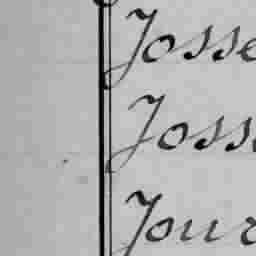 Josse
Joss
Jour